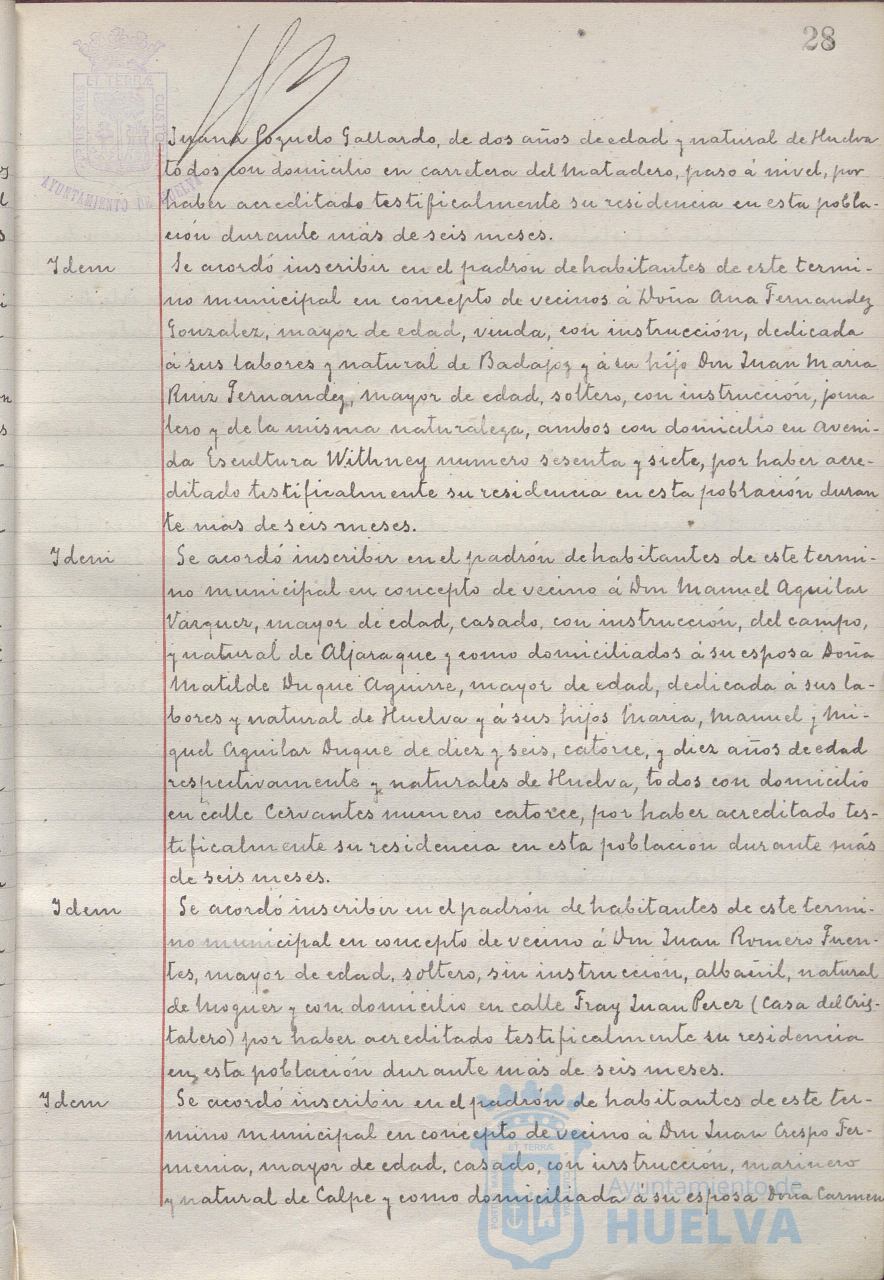 28
ET TERRÆ
CUSTO
AYUNTAMIENTO DE HUELVA
Juana Pozuelo Gallardo, de dos años de edad y natural de Huelva
todos con domicilio en carretera del Matadero, paso á nivel, por
haber acreditado testificalmente su residencia en esta pobla-
ción durante más de seis meses.
Idem
Se acordó inscribir en el padrón de habitantes de este termi-
no municipal en concepto de vecinos á Doña Ana Fernandez
Gonzalez, mayor de edad, viuda, con instrucción, dedicada
á sus labores y natural de Badajoz y á su hijo Don Juan Maria
Ruiz Fernandez, mayor de edad, soltero, con instrucción, jorna
lero y de la misma naturaleza, ambos con domicilio en Aveni-
da Escultura Withney numero sesenta y siete, por haber acre-
ditado testificalmente su residencia en esta población duran
te mas de seis meses.
Idem
Se acordó inscribir en el padrón de habitantes de este termi-
no municipal en concepto de vecino á Don Manuel Aguilar
Vazquez, mayor de edad, casado, con instrucción, del campo,
y natural de Aljaraque y como domiciliados á su esposa Doña
Matilde Duque Aguirre, mayor de edad, dedicada á sus la-
bores y natural de Huelva y á sus hijos Maria, Manuel y Mi-
guel Aguilar Duque de diez y seis, catorce, y diez años de edad
respectivamente y naturales de Huelva, todos con domicilio
en calle Cervantes numero catorce, por haber acreditado tes-
tificalmente su residencia en esta poblacion durante más
de seis meses.
Idem
Se acordó inscribir en el padrón de habitantes de este termi-
no municipal en concepto de vecino á Don Juan Romero Fuen-
tes, mayor de edad, soltero, sin instrucción, albañil, natural
de Moguer y con domicilio en calle Fray Juan Perez (Casa del Cris-
talero) por haber acreditado testificalmente su residencia
en esta población durante más de seis meses.
Idem
Se acordó inscribir en el padrón de habitantes de este ter-
mino municipal en concepto de vecino á Don Juan Crespo Fer-
menia, mayor de edad, casado, con instrucción, marinero
y natural de Calpe y como domiciliada á su esposa Doña Carmen
Ayuntamiento de
HUELVA